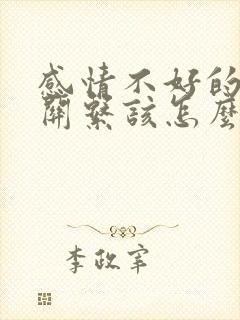 感情不好的
關繫該怎麼
李政宰